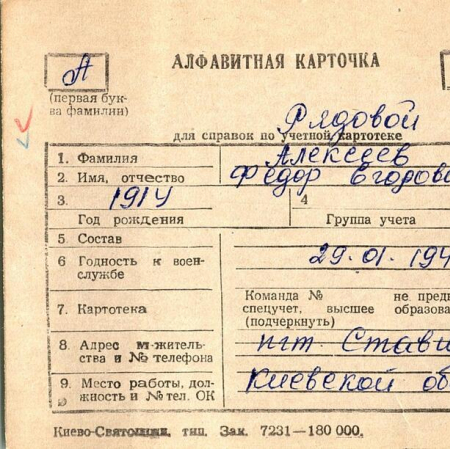 А
АЛФАВИТНАЯ КАРТОЧКА
(первая бук-
ва фамилии)
Рядовой
для справок по учетной картотеке
1. Фамилия Алексеев
2. Имя, отчество Федор Егорови
3. 1914 4
Год рождения Группа учета
5 Состав
6 Годность к воен-
службе 29.01.194
7. Картотека Команда № не предн
спецучет, высшее образова
(подчеркнуть)
8. Адрес м-жительс-
ства и № телефона пгт Стави
9. Место работы, дол-
жность и № тел. ОК Киевской об
Киево-Святошин. тип. Зак. 7231—180 000.